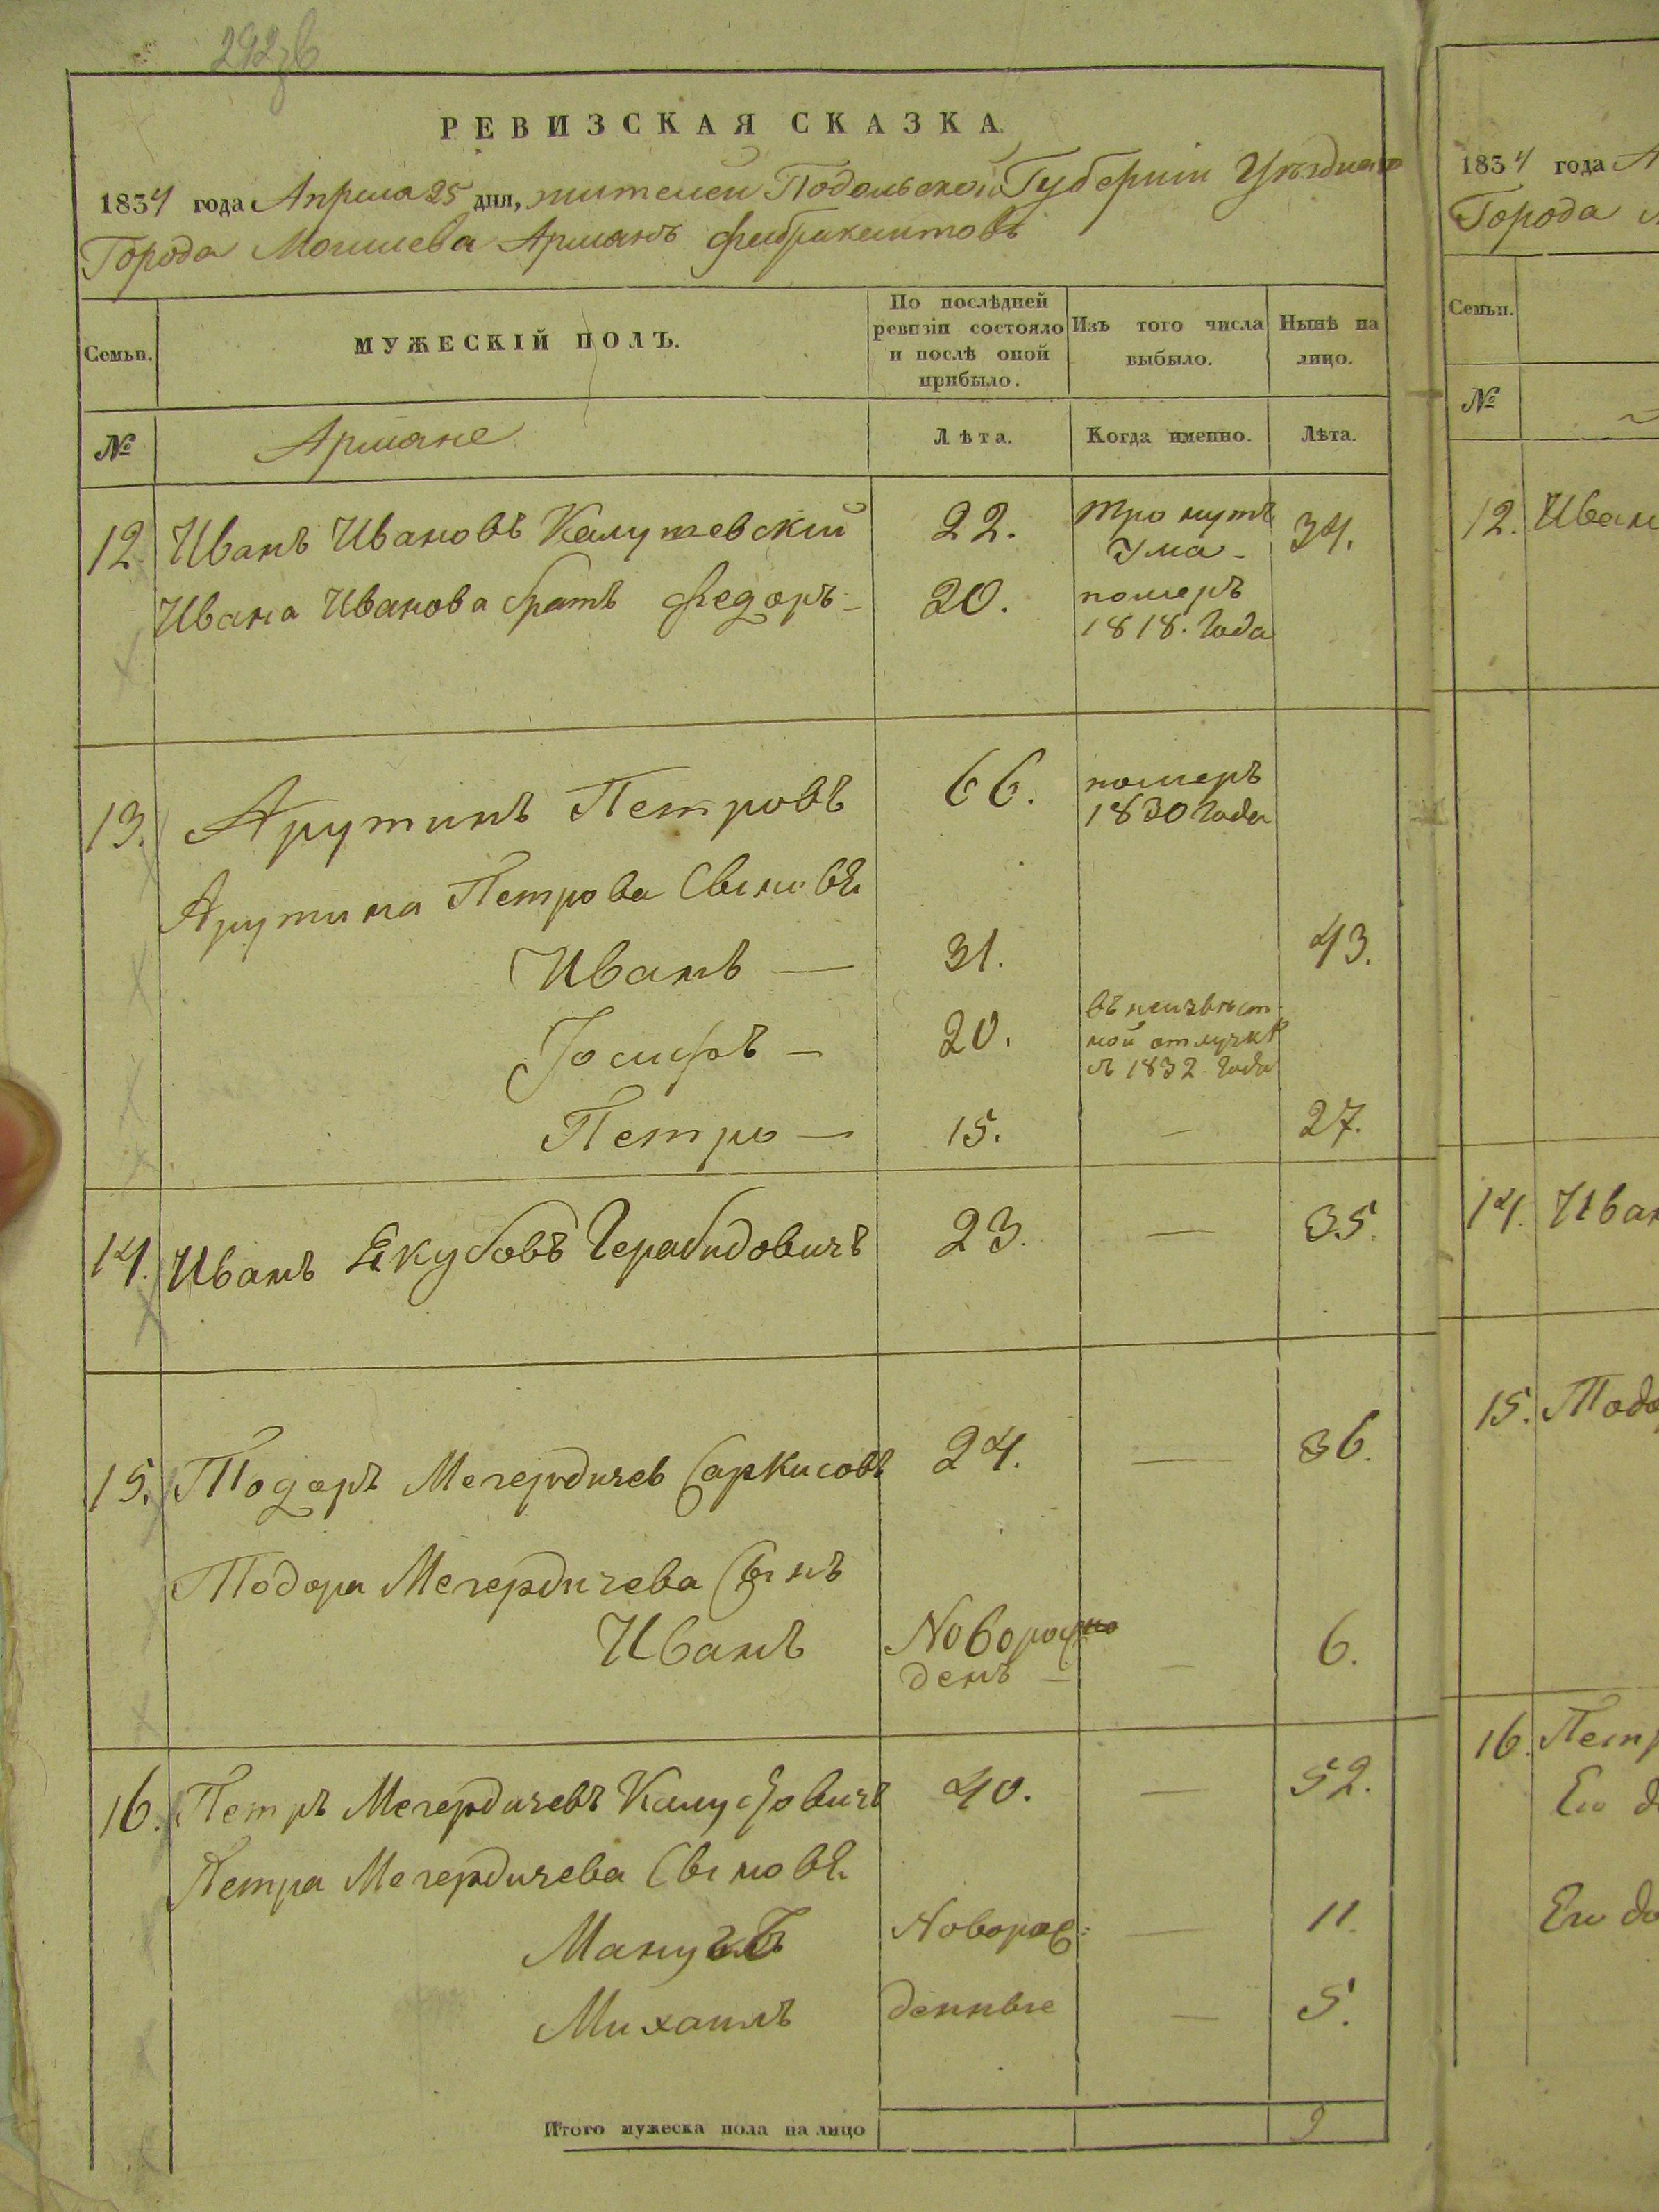 292об
РЕВИЗСКАЯ СКАЗКА.
1834 года Апреля 25 дня, жителей Подольской Губернии Уѣзднаго
Города Могилева Армянъ фабрикантовъ
Семьи.
МУЖЕСКІЙ ПОЛЪ.
По послѣдней
ревизіи состояло
и послѣ оной
прибыло.
Изъ того числа
выбыло.
Нынѣ на
лицо.
№
Армяне
Лѣта.
Когда именно.
Лѣта.
12. Иванъ Ивановъ Калушевскій 22. тронутъ 34.
Ума
Ивана Иванова братъ Федоръ 20. померъ
1818. года
13. Арутинъ Петровъ 66. померъ
1830 года
Арутина Петрова Сыновья
Иванъ — 31. 43.
Іосифъ — 20. въ неизвѣст-
ной отлучкѣ
съ 1832 года
Петръ — 15. — 27.
14. Иванъ Якубовъ Герабидовичъ 23. — 35.
15. Тодоръ Мегердичев Саркисовъ 24. — 36.
Тодора Мегердичева Сынъ
Иванъ Новорож
денъ — — 6.
16. Петръ Мегердичевъ Капусѳовичъ 40. — 52.
Петра Мегердичева Сыновья
Манугъ Новорож= — 11.
Михаилъ денные — 5.
Итого мужеска пола на лицо 9
1834 года А
Города
Семьи.
№
12. Иван
14. Иван
15. Тодо
16. Петр
Его д
Его до